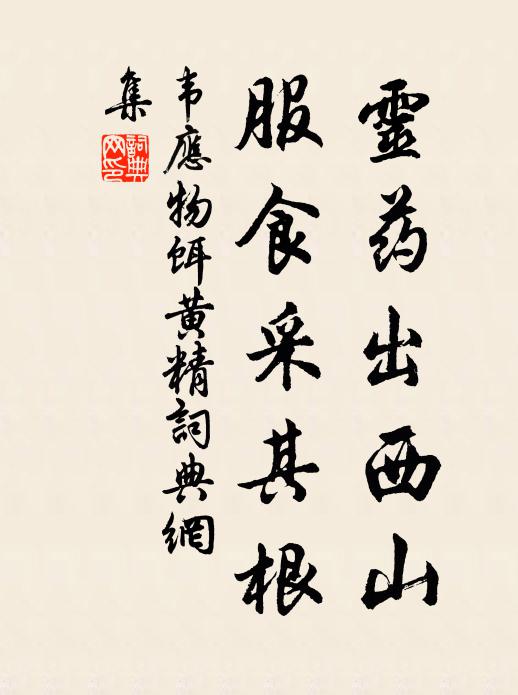 靈药出西山
服食采其根
韦應物餌黄精詞典網
集
詞典網印